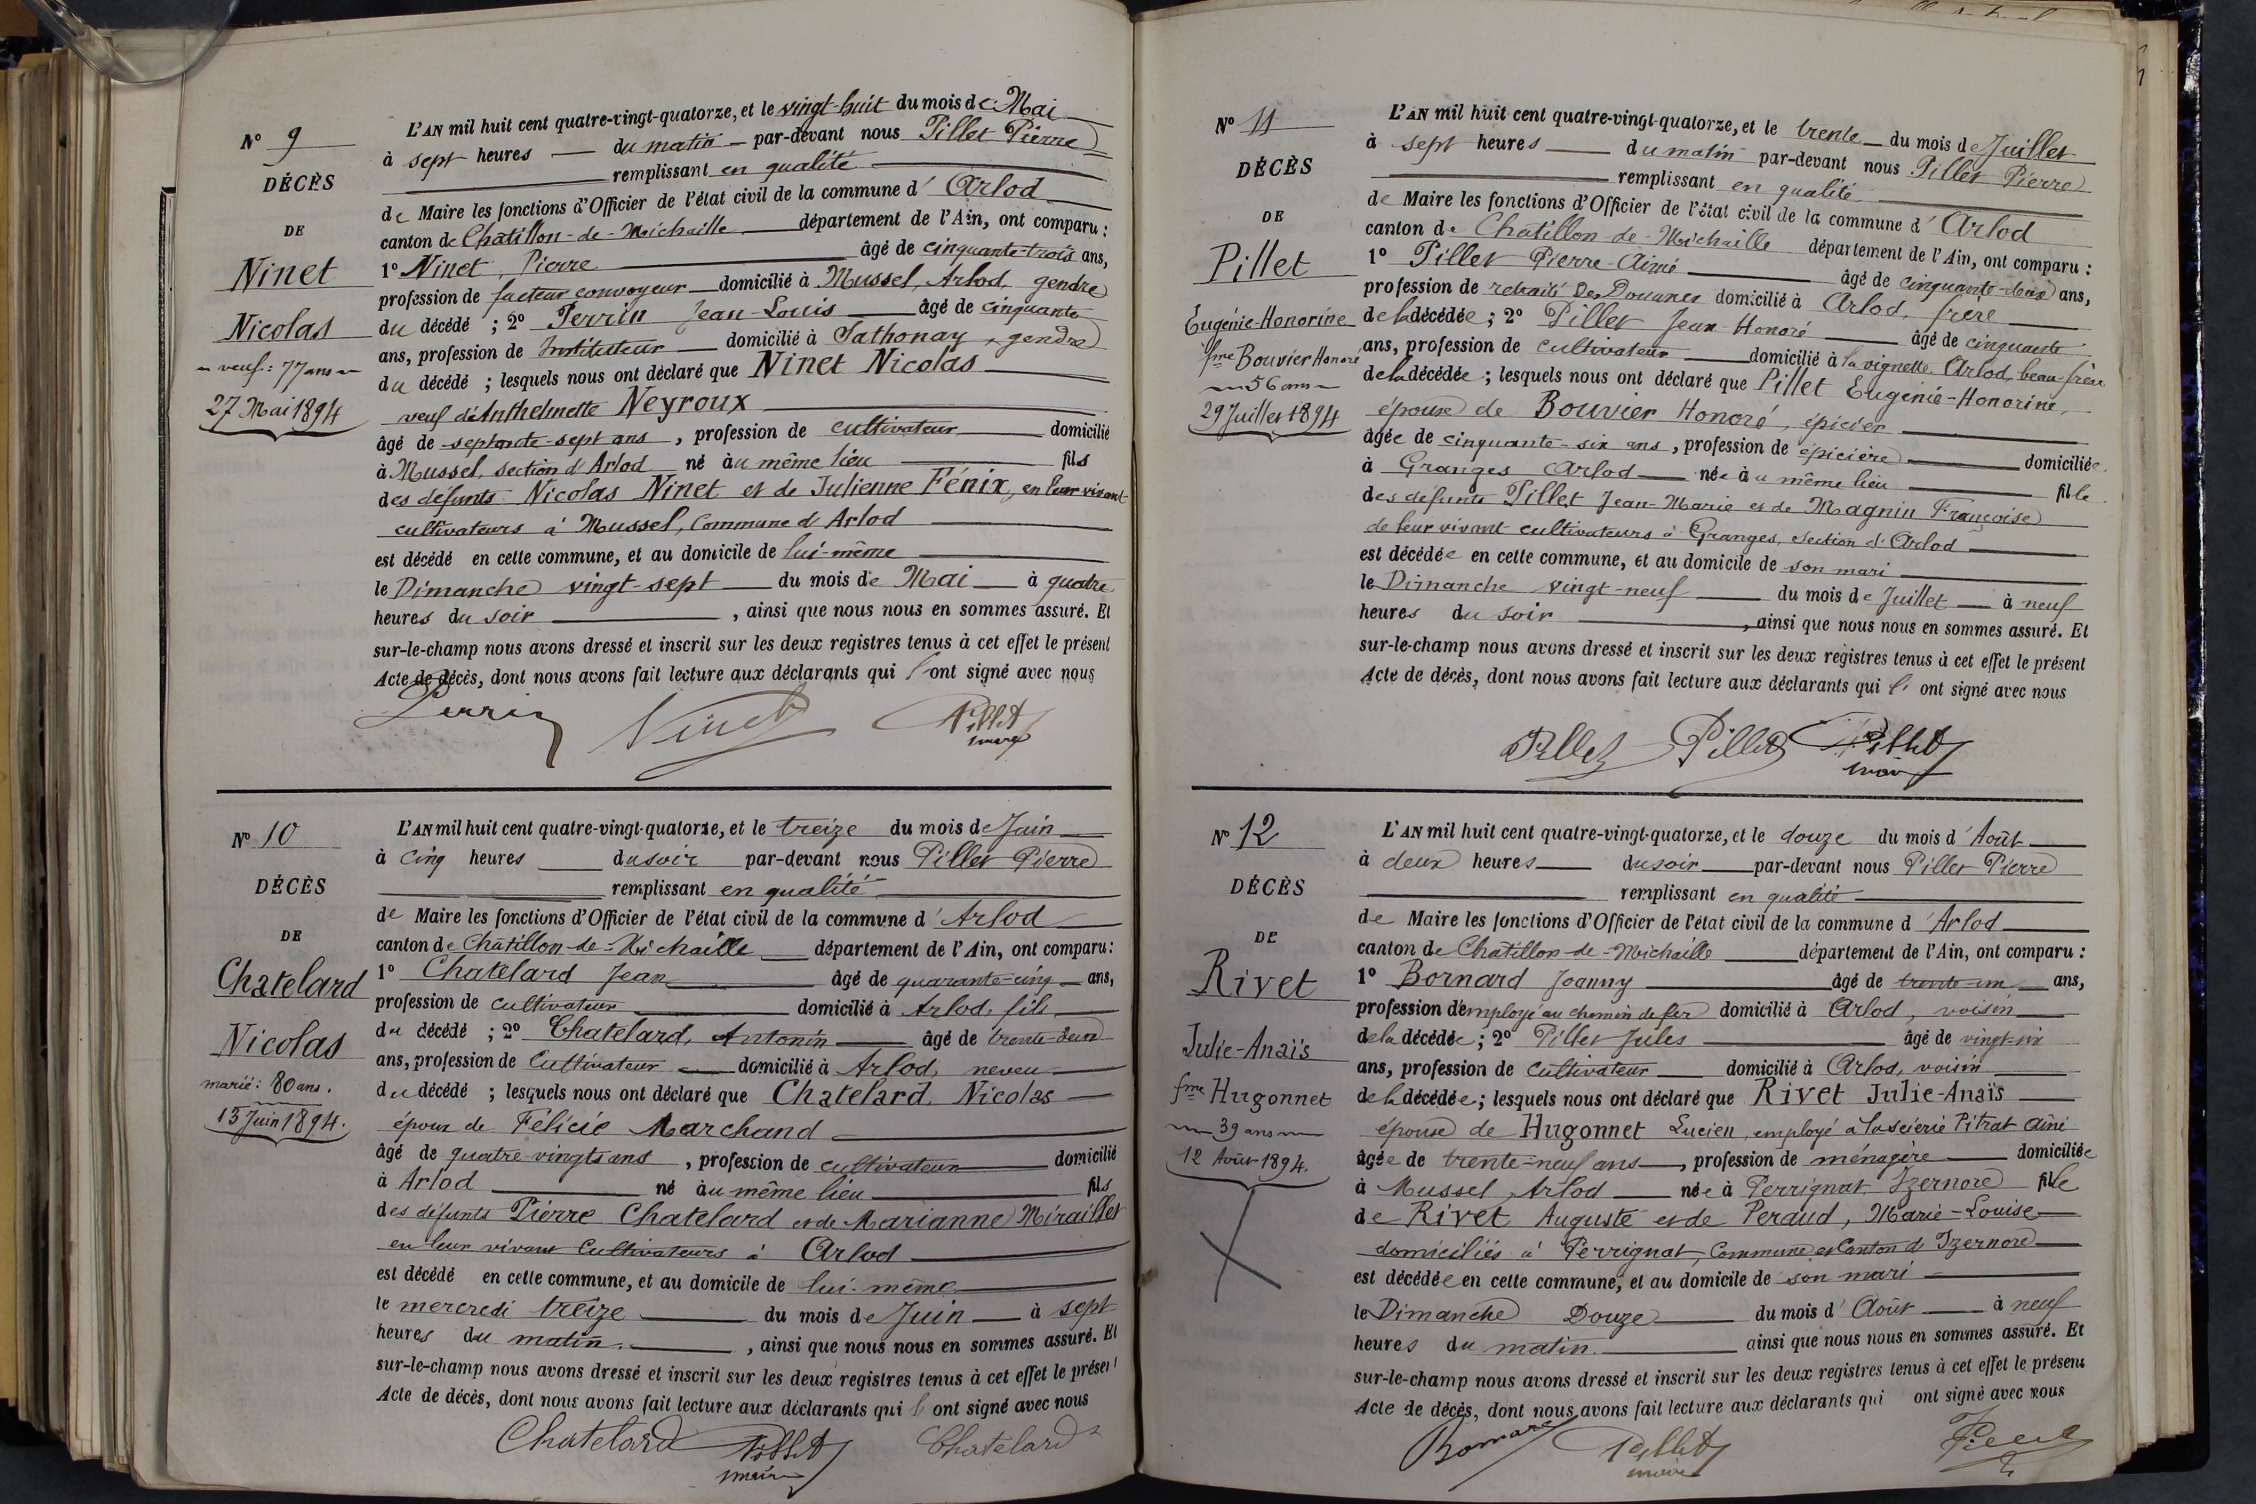 N° 9
DÉCÈS
DE
Ninet
Nicolas
veuf : 77 ans
27 Mai 1894
L'AN mil huit cent quatre-vingt-quatorze, et le vingt-huit du mois de Mai
à sept heures du matin par-devant nous Pillet Pierre
remplissant en qualité
de Maire les fonctions d'Officier de l'état civil de la commune d'Arlod
canton de Châtillon-de-Michaille département de l'Ain, ont comparu :
1° Ninet, Pierre âgé de cinquante-trois ans,
profession de facteur convoyeur domicilié à Mussel, Arlod, gendre
du décédé ; 2° Perrin Jean-Louis âgé de cinquante
ans, profession de Instituteur domicilié à Sathonay, gendre
du décédé ; lesquels nous ont déclaré que Ninet Nicolas
veuf de Anthelmette Neyroux
âgé de septante-sept ans, profession de cultivateur domicilié
à Mussel, section d'Arlod né au même lieu fils
des défunts Nicolas Ninet et de Julienne Fénix, en leur vivant
cultivateurs à Mussel, Commune d'Arlod
est décédé en cette commune, et au domicile de lui-même
le Dimanche vingt-sept du mois de Mai à quatre
heures du soir, ainsi que nous nous en sommes assuré. Et
sur-le-champ nous avons dressé et inscrit sur les deux registres tenus à cet effet le présent
Acte de décès, dont nous avons fait lecture aux déclarants qui l'ont signé avec nous
Perrin Ninet Pillet
maire
N° 10
DÉCÈS
DE
Chatelard
Nicolas
marié : 80 ans.
13 Juin 1894.
L'AN mil huit cent quatre-vingt-quatorze, et le treize du mois de Juin
à cinq heures du soir par-devant nous Pillet Pierre
remplissant en qualité
de Maire les fonctions d'Officier de l'état civil de la commune d'Arlod
canton de Châtillon-de-Michaille département de l'Ain, ont comparu :
1° Chatelard Jean âgé de quarante-cinq ans,
profession de cultivateur domicilié à Arlod, fils
du décédé ; 2° Chatelard, Antonin âgé de trente-deux
ans, profession de Cultivateur domicilié à Arlod, neveu
du décédé ; lesquels nous ont déclaré que Chatelard Nicolas
époux de Félicie Marchand
âgé de quatre-vingts ans, profession de cultivateur domicilié
à Arlod né au même lieu fils
des défunts Pierre Chatelard et de Marianne Miraillet
en leur vivant Cultivateurs à Arlod
est décédé en cette commune, et au domicile de lui-même
le mercredi treize du mois de Juin à sept
heures du matin, ainsi que nous nous en sommes assuré. Et
sur-le-champ nous avons dressé et inscrit sur les deux registres tenus à cet effet le présent
Acte de décès, dont nous avons fait lecture aux déclarants qui l'ont signé avec nous
Chatelard Pillet Chatelard
maire
N° 11
DÉCÈS
DE
Pillet
Eugénie-Honorine
fme Bouvier Honoré
56 ans
29 Juillet 1894
L'AN mil huit cent quatre-vingt-quatorze, et le trente du mois de Juillet
à sept heures du matin par-devant nous Pillet Pierre
remplissant en qualité
de Maire les fonctions d'Officier de l'état civil de la commune d'Arlod
canton de Châtillon-de-Michaille département de l'Ain, ont comparu :
1° Pillet Pierre-Aimé âgé de cinquante-deux ans,
profession de retraité des Douanes domicilié à Arlod, frère
de la décédée ; 2° Pillet Jean Honoré âgé de cinquante
ans, profession de cultivateur domicilié à la vignette, Arlod, beau-frère
de la décédée ; lesquels nous ont déclaré que Pillet Eugénie-Honorine,
épouse de Bouvier Honoré, épicier
âgée de cinquante-six ans, profession de épicière domiciliée
à Granges Arlod née au même lieu fille
des défunts Pillet Jean-Marie et de Magnin Françoise
de leur vivant cultivateurs à Granges, Section d'Arlod
est décédée en cette commune, et au domicile de son mari
le Dimanche vingt-neuf du mois de Juillet à neuf
heures du soir, ainsi que nous nous en sommes assuré. Et
sur-le-champ nous avons dressé et inscrit sur les deux registres tenus à cet effet le présent
Acte de décès, dont nous avons fait lecture aux déclarants qui l' ont signé avec nous
Pillet Pillet Pillet
maire
N° 12
DÉCÈS
DE
Rivet
Julie-Anaïs
fme Hugonnet
39 ans
12 Août 1894.
L'AN mil huit cent quatre-vingt-quatorze, et le douze du mois d'Août
à deux heures du soir par-devant nous Pillet Pierre
remplissant en qualité
de Maire les fonctions d'Officier de l'état civil de la commune d'Arlod
canton de Châtillon-de-Michaille département de l'Ain, ont comparu :
1° Bornard Joanny âgé de trente-un ans,
profession d'employé au chemin de fer domicilié à Arlod, voisin
de la décédée ; 2° Pillet Jules âgé de vingt-six
ans, profession de Cultivateur domicilié à Arlod, voisin
de la décédée ; lesquels nous ont déclaré que Rivet Julie-Anaïs
épouse de Hugonnet Lucien, employé à la scierie Pitrat aîné
âgée de trente-neuf ans, profession de ménagère domiciliée
à Mussel, Arlod née à Perrignat Izernore fille
de Rivet Auguste et de Peraud, Marie-Louise
domiciliés à Perrignat, Commune et Canton d'Izernore
est décédée en cette commune, et au domicile de son mari
le Dimanche Douze du mois d'Août à neuf
heures du matin ainsi que nous nous en sommes assuré. Et
sur-le-champ nous avons dressé et inscrit sur les deux registres tenus à cet effet le présent
Acte de décès, dont nous avons fait lecture aux déclarants qui ont signé avec nous
Bornard Pillet
maire